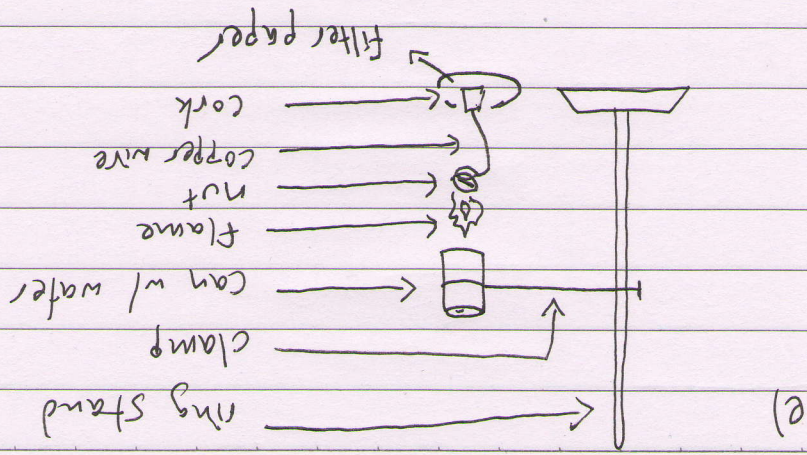 e)
ring stand
clamp
can w/ water
flame
nut
copper wire
cork
filter paper